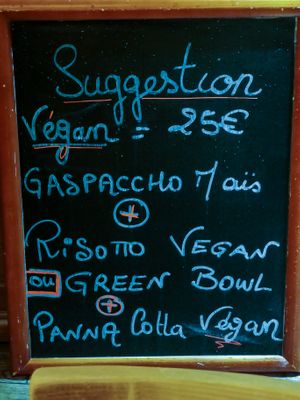 Suggestion
Végan = 25€
GASPACCHO Maïs
+
RISOTTO VEGAN
ou GREEN BOWL
+
PANNA Cotta Végan